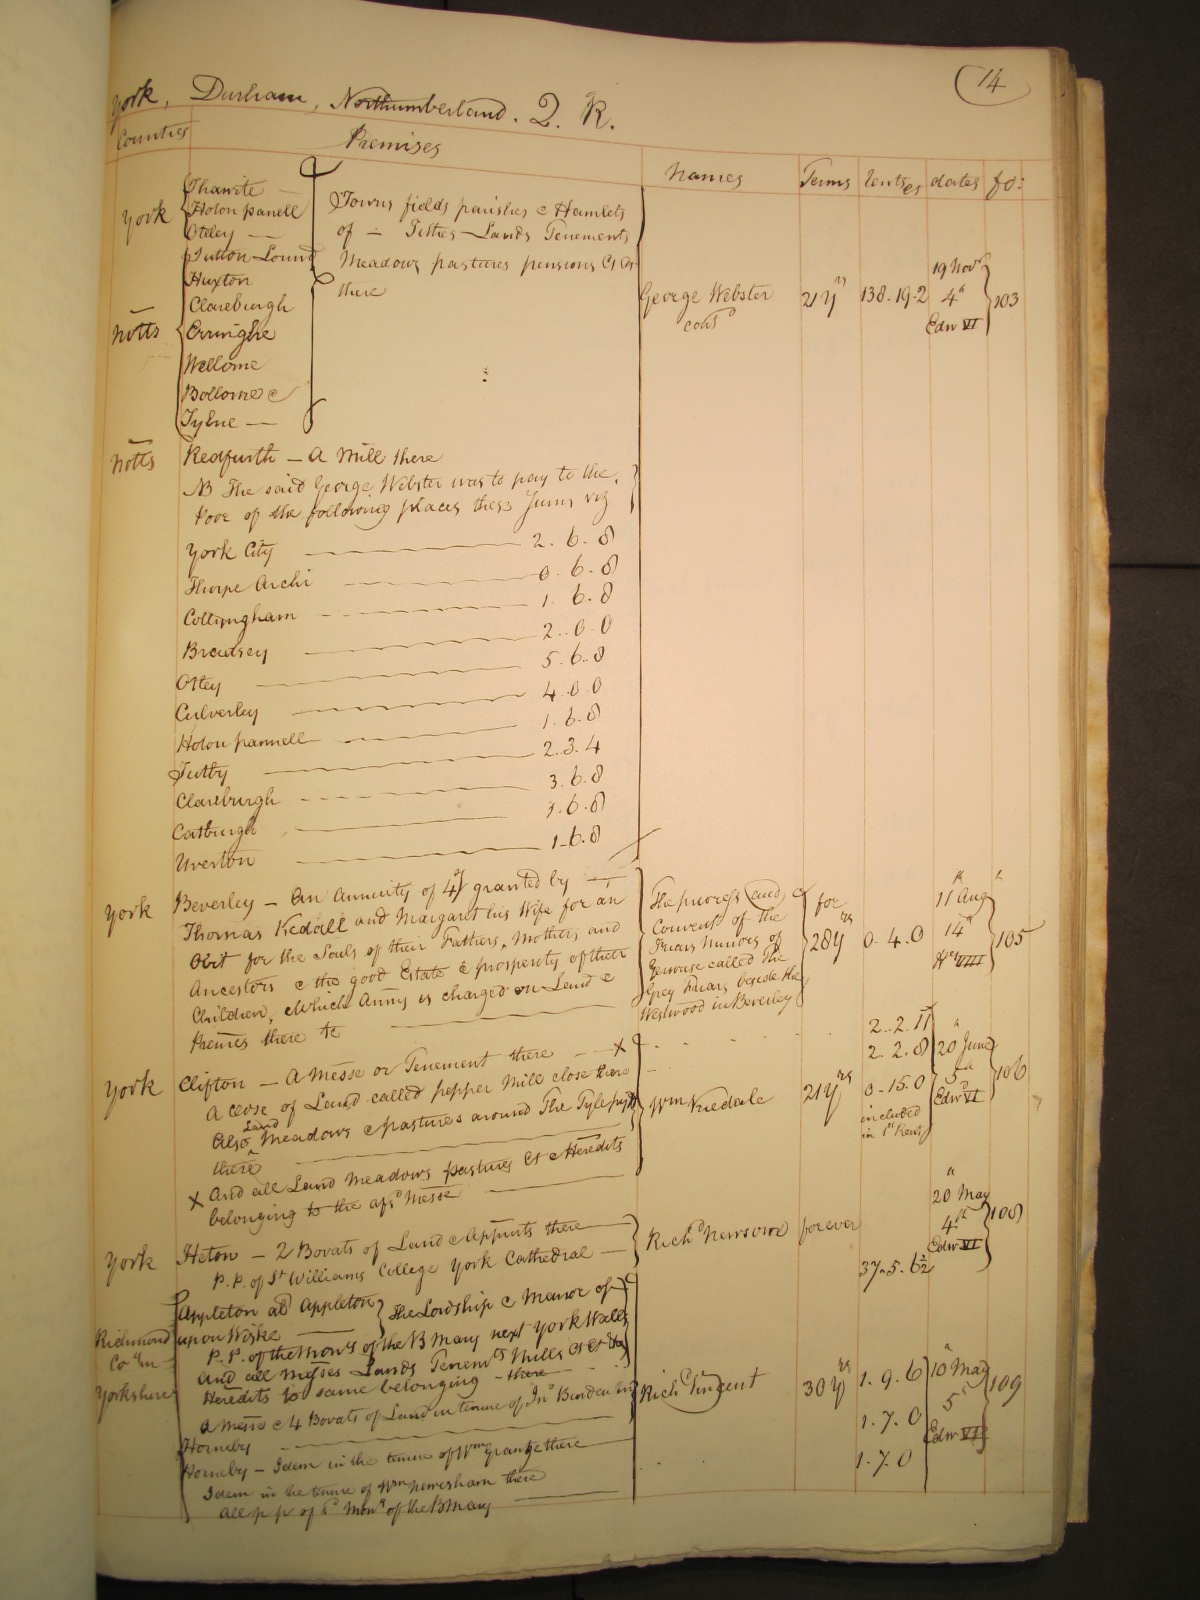 14
York, Durham, Northumberland. Q. R.
Counties Premises Names Terms Rentes dates fo:
York
Thawite —
Holon panell
Otley —
Sutton Lound
Huxton
Notts
Clareburgh
Erringhe
Wellome
Bollome &
Tylne —
Towns fields parishes & Hamlets
of — Tithes Lands Tenements
Meadows pastures pensions &c &c
there
George Webster 21 yrs 138-19-2 19 Novr 4th Edw VI 103
Notts Redfurth — A Mill there
NB The said George Webster was to pay to the
Poor of the following places these Sums viz
York City 2. 6. 8
Thorpe Archi 0. 6. 8
Collingham 1. 6. 8
Bradsey 2. 0. 0
Otley 5. 6. 8
Culverley 4. 0. 0
Holon pannell 1. 6. 8
Sutby 2. 3. 4
Clareburgh 3. 6. 8
Catburgh 3. 6. 8
Uverton 1. 6. 8
York Beverley — An annuity of 4s/ granted by
Thomas Kedall and Margaret his Wife for an
Obit for the Souls of their Fathers, Mothers and
Ancestors & the good Estate & prosperity of their
Children, which Anny is charged on Land &
Premes there &c
The and
Convent of the
Friars minors of
called the
Grey Friars beside the
Westwood in Beverley
for 28 yrs 0. 4. 0 11th Augt 14th Hy VIII 105
York Clifton — A Messe or Tenement there — X
A close of Land called pepper Mill close there
Also Land Meadows & pastures around The
there
X And all Land Meadows pastures &c & Heredits
belonging to the afsd Messe
Wm 21 yrs
2. 2. 11
2. 2. 8
0-15.0
included
in 1st Rent
20 June 5th Edwd VI 106
York Heton — 2 Bovats of Land & Appurts there
P. P. of St Williams College York Cathedral
Richd Newsome forever 37. 5. 6½ 20 May 4th Edw VI 108
Richmond
Co in
Yorkshire
Appleton als Appleton
upon Wiske
The Lordship & Manor of
P. P. of the Mony of the B Mary next York Walls
And all Messes Lands Tenemts Mills &c &c &c
Heredits to same belonging — there
A Messe & 4 Bovats of Land in tenure of Jno Burden in
Horneby
Horneby — Idem in the tenure of Wm Grange there
Idem in the tenure of Wm Newesham there
All p p of sd Mony of the B Mary
Richd Vincent 30 yrs
1. 9. 6
1. 7. 0
1. 7. 0
10 May 5th Edw VI 109